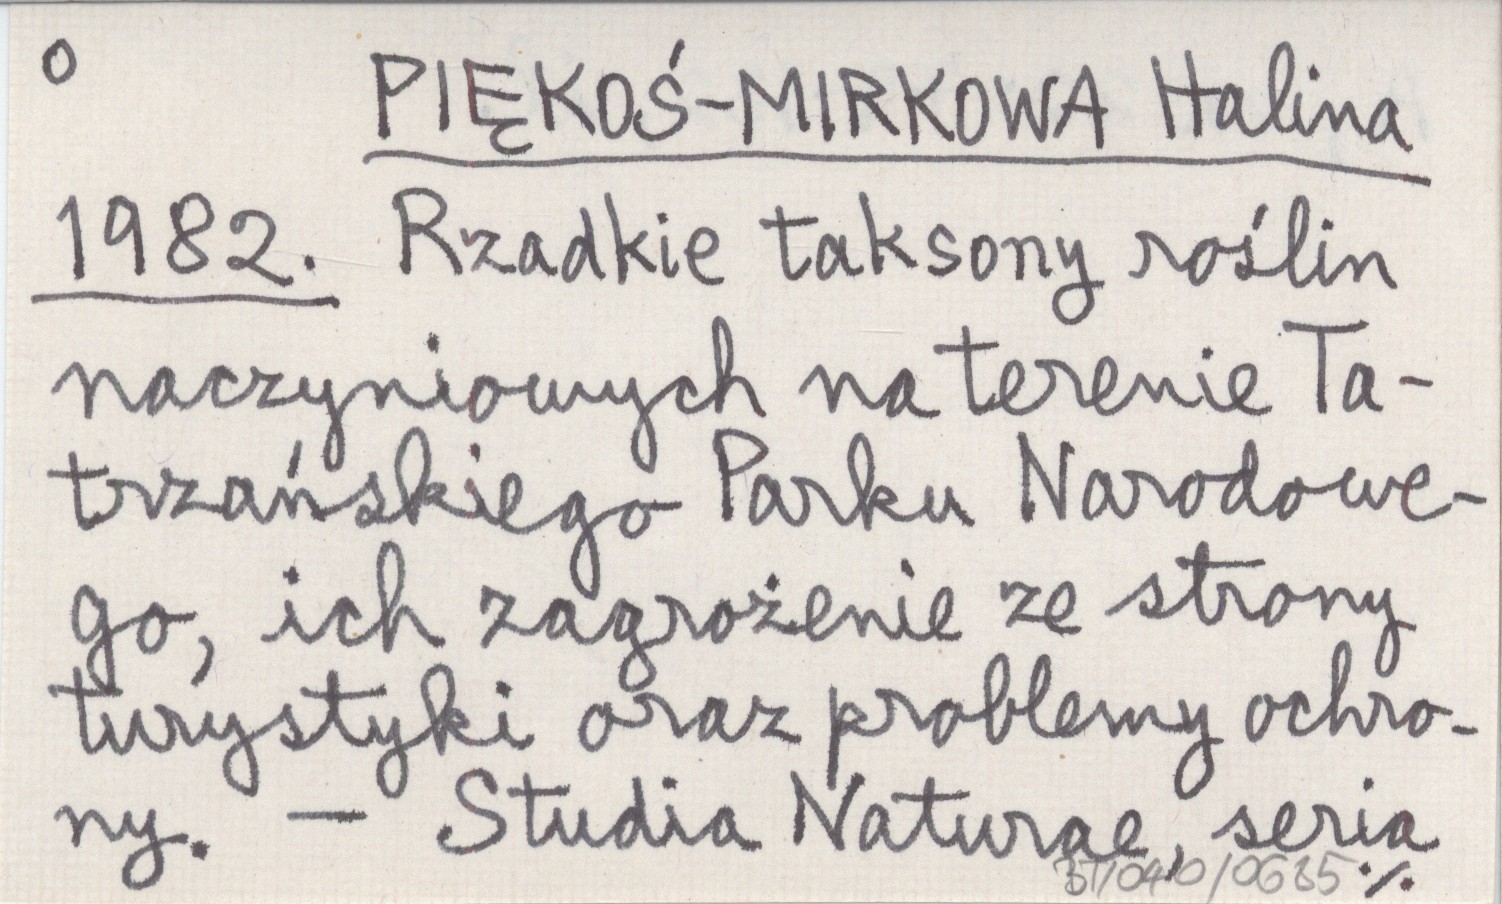 o PIĘKOŚ-MIRKOWA Halina
1982. Rzadkie taksony roślin
naczyniowych na terenie Ta-
trzańskiego Parku Narodowe-
go, ich zagrożenie ze strony
turystyki oraz problemy ochro-
ny. — Studia Naturae, seria
BT/040/0635 ·/.